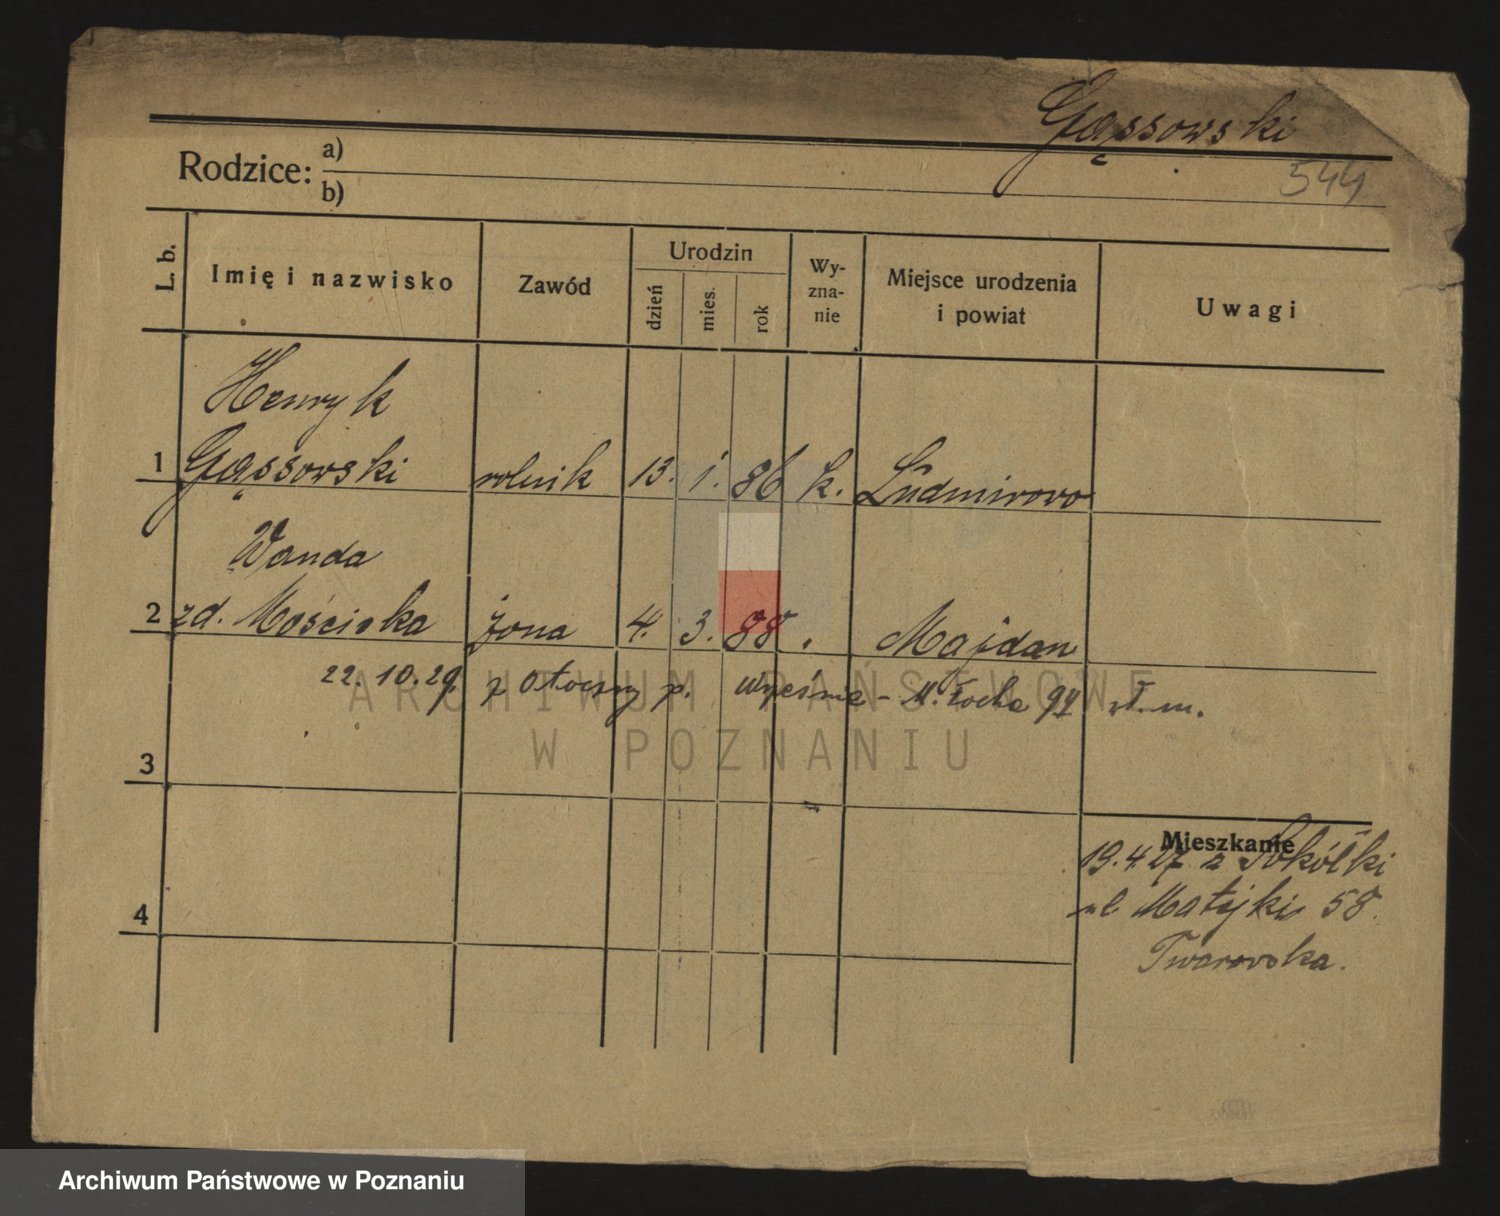 Gąssowski
544
Rodzice: a)
b)
L. b. Imię i nazwisko Zawód Urodzin dzień mies. rok Wy-zna-nie Miejsce urodzenia i powiat Uwagi
Henryk
1 Gąssowski rolnik 13. 1. 86 k. Ludmirowo
Wanda
2 zd. Mościcka żona 4. 3. 88 . Majdan
22.10.29. z Otoczny p. Września - M. Focha 92
3
ARCHIWUM PAŃSTWOWE
W POZNANIU
Mieszkanie
19.4.27 z Sokółki
ul Matejki 58.
4
Twarowska.
Archiwum Państwowe w Poznaniu